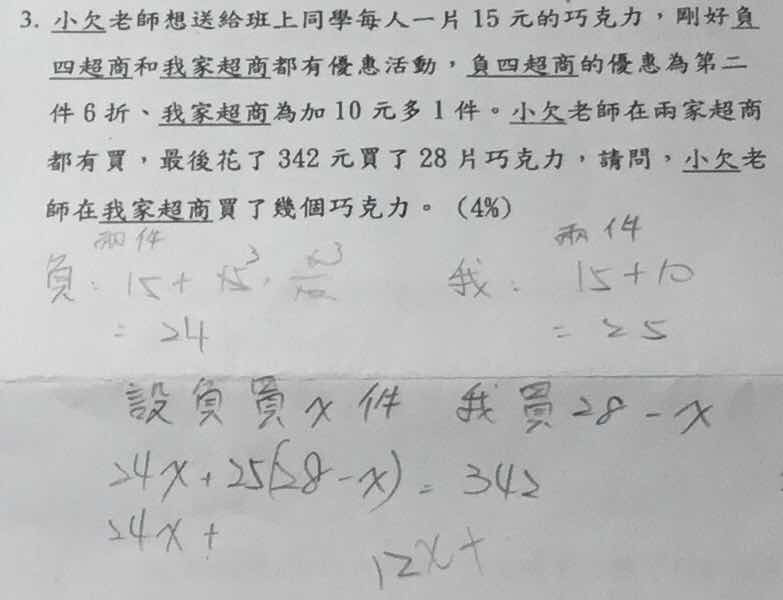 3. 小欠老師想送給班上同學每人一片 15 元的巧克力，剛好負
四超商和我家超商都有優惠活動，負四超商的優惠為第二
件 6 折、我家超商為加 10 元多 1 件。小欠老師在兩家超商
都有買，最後花了 342 元買了 28 片巧克力，請問，小欠老
師在我家超商買了幾個巧克力。（4%）
兩件 兩件
負：15 + 15³ · 我：15+10
= 24 = 25
設負買 x 件 我買 28 - x
24x + 25(28 - x) = 342
24x +
12x +